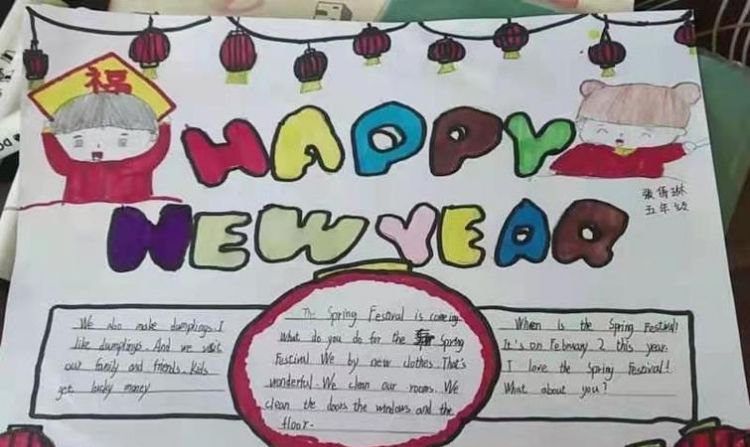 福
HAPPY
NEW YEAR
五年级
We also make dumplings. I
like dumplings. And we visit
our family and friends. Kids
get lucky money
The Spring Festival is coming.
What do you do for the Spring
Festival. We by new clothes. That's
wonderful. We clean our rooms. We
clean the doors the windows and the
floor.
When is the Spring Festival?
It's on February 2 this year.
I love the Spring Festival!
What about you?